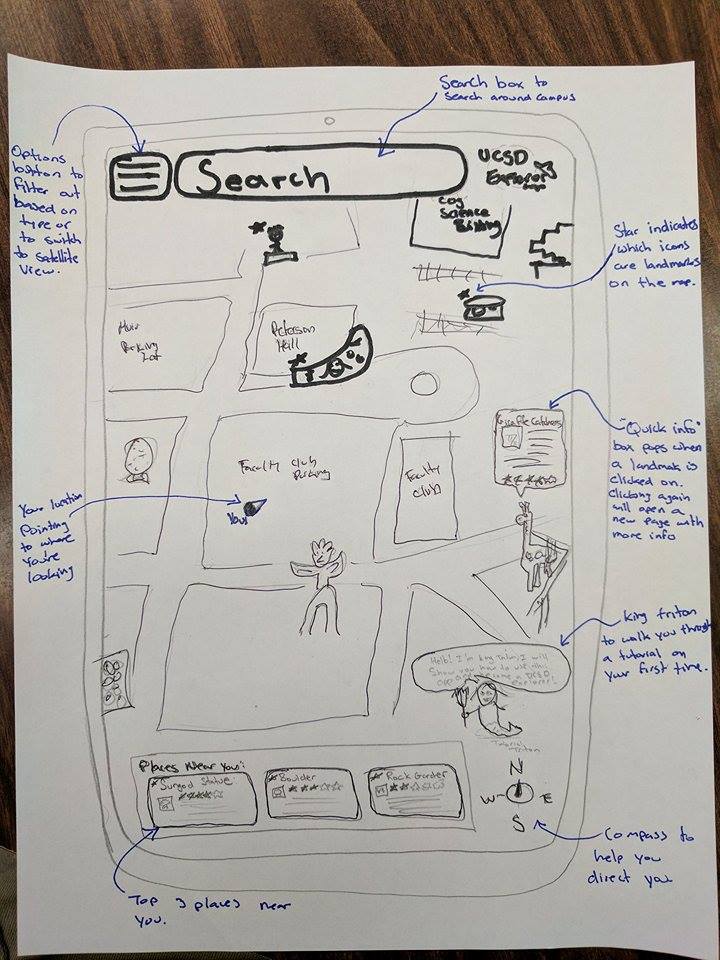 Search box to
Search around campus
Options
button to
filter out
based on
type or
to switch
to satellite
view.
Search
UCSD
Explorer
Cog
Science
Building
Star indicates
which icons
are landmarks
on the map.
Muir
Parking
Lot
Peterson
Hall
Giraffe Catchers
"Quick info"
box pops when
a landmark is
clicked on.
Clicking again
will open a
new page with
more info
Faculty Club
Parking
Faculty
Club
You!
Your location
pointing
to where
you're
looking
King Triton
to walk you through
a tutorial on
your first time.
Hello! I'm King Triton, I will
Show you how to use this
app and become a UCSD
explorer!
Tutorial
Triton
Places Near You:
Sungod Statue
Boulder
Rock Garden
N
W
E
S
Compass to
help you
direct you
Top 3 places near
you.